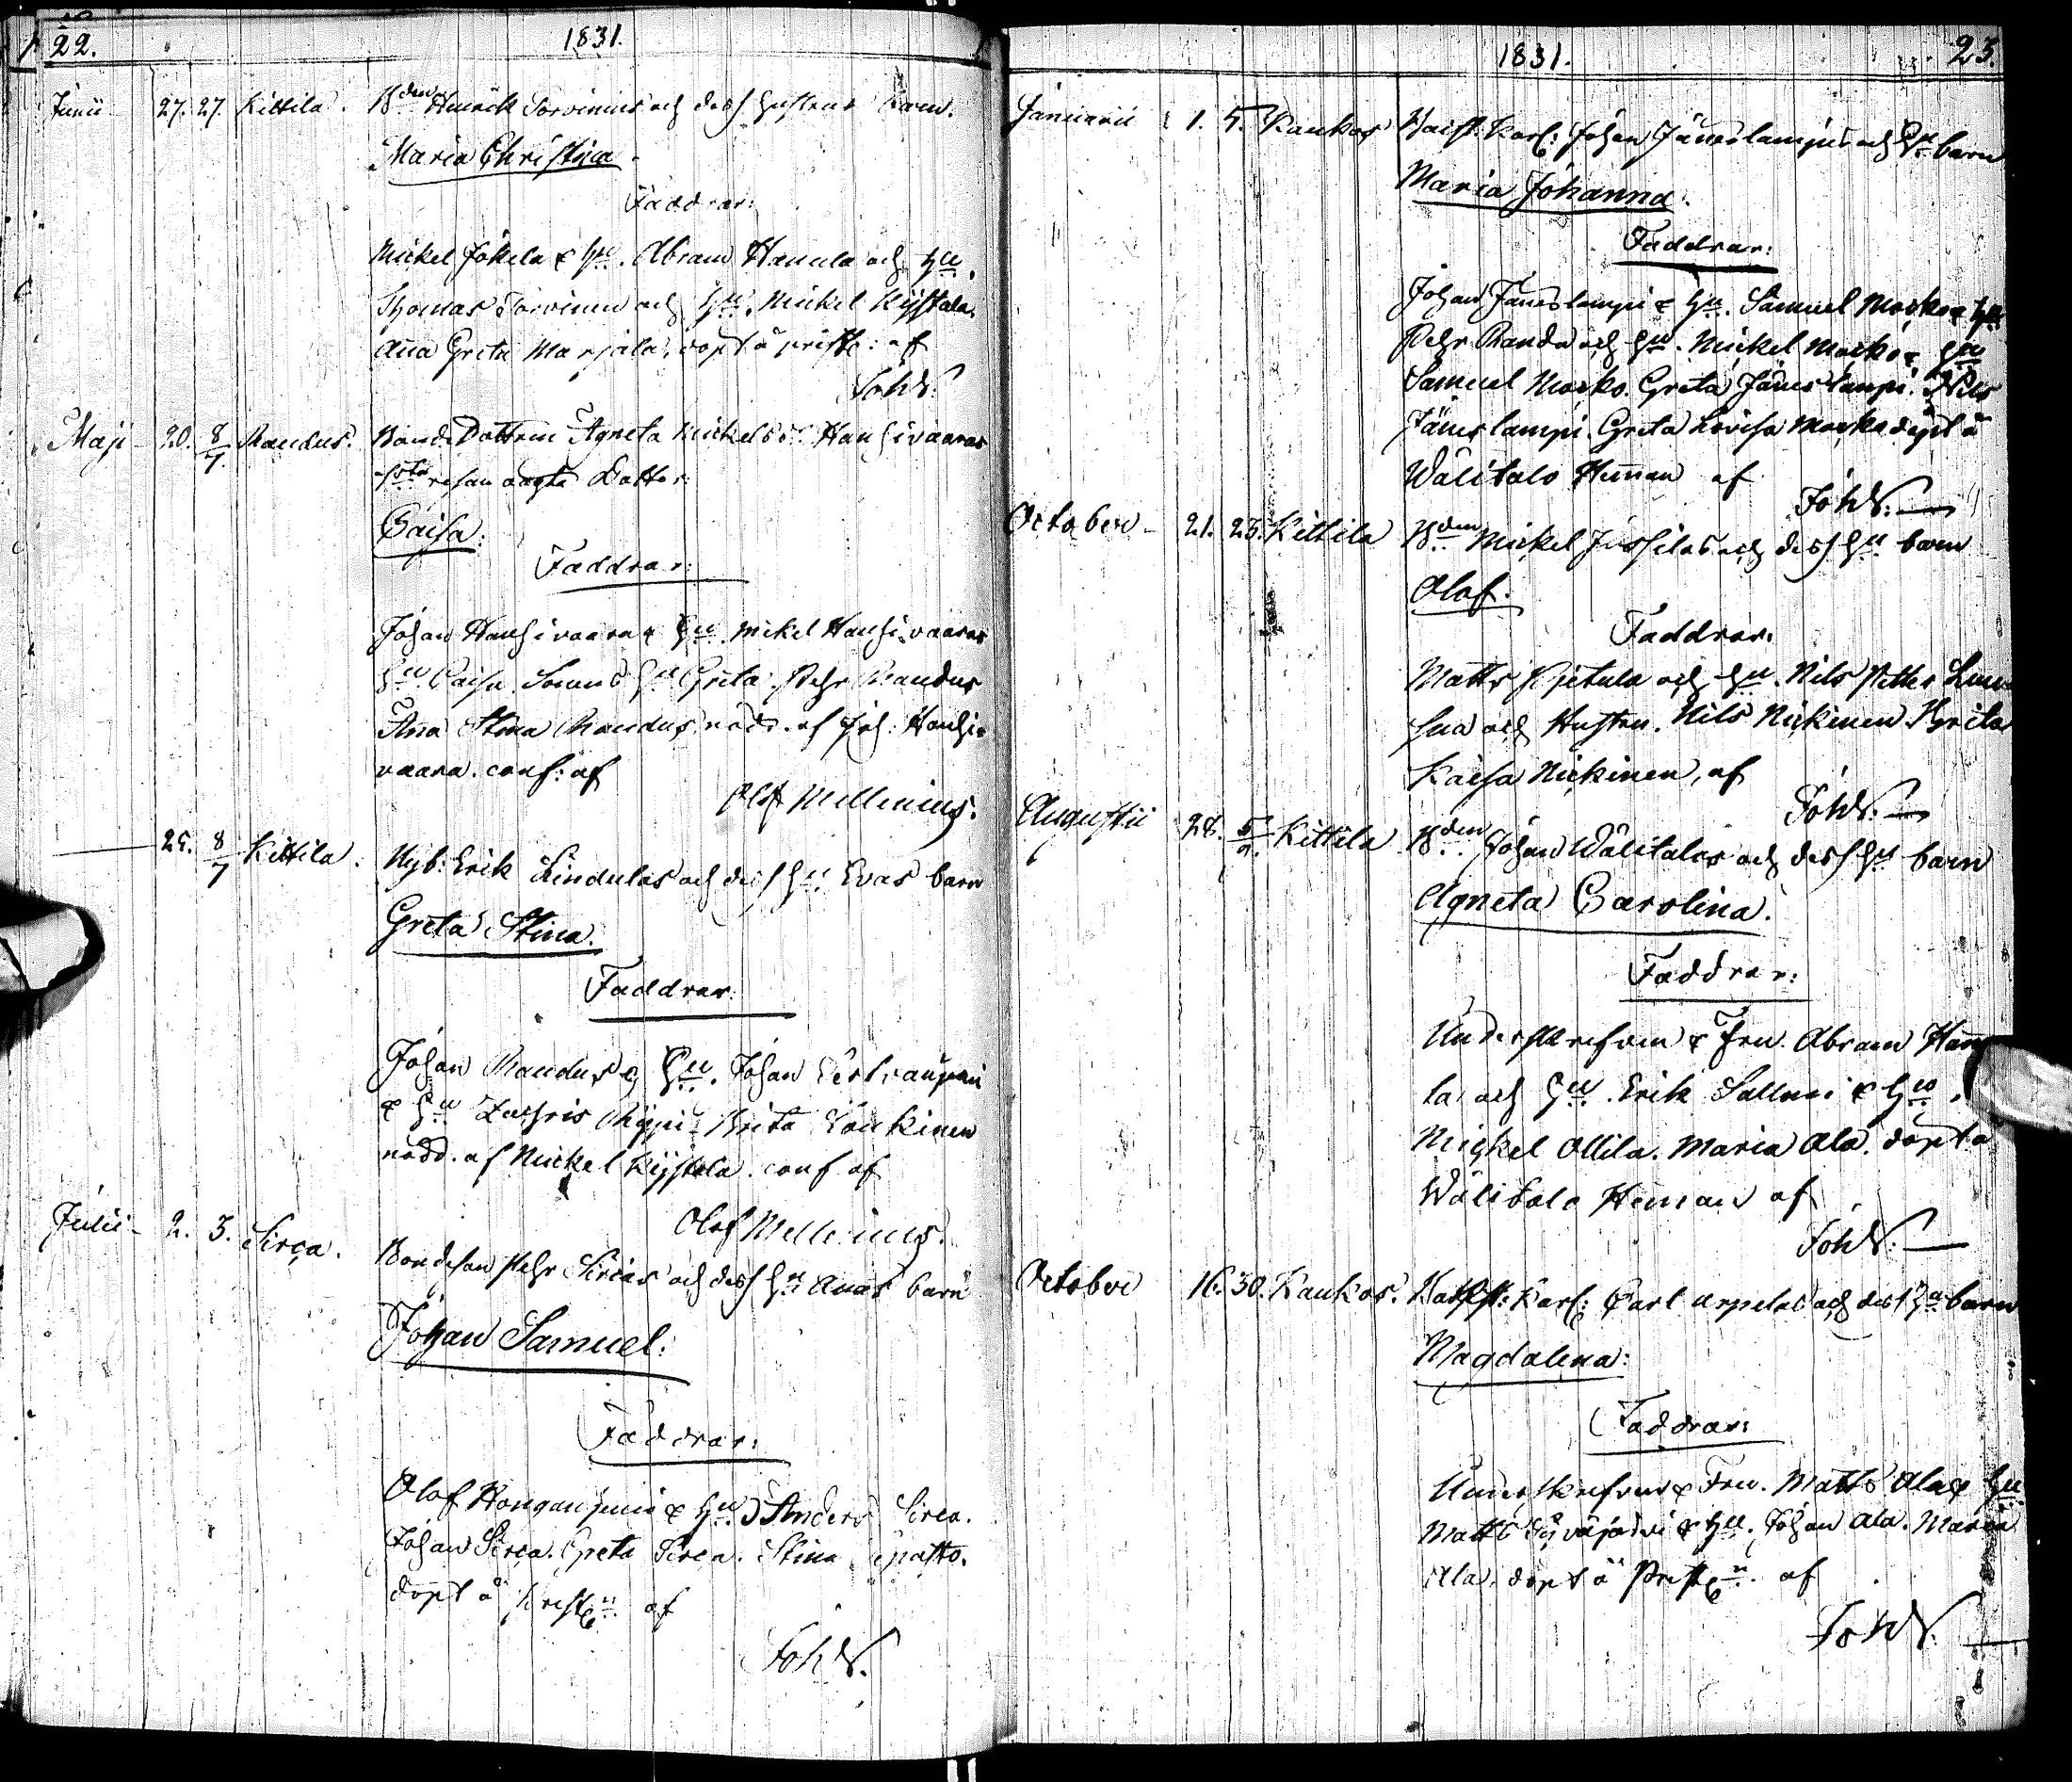 22.
1831.
Junii 27. 27. Kittila. Bden Henrik Torvinens och dess Hustrus barn.
Maria Christina.
Faddrar:
Mickel Jokela & Hu. Abram Hannula och Hu.
Thomas Torvinen och Hu. Mickel Kÿstala.
Aña Greta Marjala, döpt å af
Joh W.
Maji 20. 8/7. Raudus. Bonde Dottren Agneta Mickelsd. Hanhivaaras
resan oägta Dotter
Caisa:
Faddrar:
Johan Hanhivaara & Hu Mickel Hanhivaaras
Hu Caisa Hu Greta. Pehr Raudus
Aña Stina Raudus nödd. af Joh: Hanhi-
vaara. conf: af
Olof Mellenius.
25. 8/7 Kittila. Nyb: Erik Lindulas och dess Hu Evas barn
Greta Stina.
Faddrar:
Johan Raudus Hu. Johan
& Hu Brita
nödd. af Mickel Kÿstala. conf af
Olof Mellenius.
Julii 2. 3. Sirca. Bondesen Pehr Sircas och dess Hu Anas barn
Johan Samuel:
Faddrar:
Olof & Hu. Anders Sirca.
Johan Sirca. Greta Sirca. Stina
döpt å af
Joh W.
1831. 23.
Januarii 1. 5. Kaukos Karl: Johan Jäneslampis och Hu barn
Maria Johanna.
Faddrar:
Johan Jäneslampi & Hu. Samuel Marko & Hu
Pehr Rauda och Hu. Mickel Marko & Hu
Samuel Marko. Greta Jäneslampi. Nils
Jäneslampi. Greta Lovisa Marko döpt å
Wälitalo Heman af
Joh W.
October 21. 23. Kittila Bden Mickel Jussilas och dess Hu barn
Olof.
Faddrar.
Matts Pietula och Hu. Nils Petter
och Hustru. Nils Nickinen
Kaisa Nickinen, af
Joh W.
Augustii 28. Kittila Bden Johan Wälitalos och dess Hu barn
Agneta Carolina.
Faddrar:
Underskrefven & Fru. Abram Hannu-
la och Hu. Erik & Hu.
Mickel Ollila. Maria Ala. döpt å
Wälitalo Heman af
Joh W.
October 16. 30. Kaukos. Karl: Carl Arpelas och dess Hu barn
Magdalena:
Faddrar:
Underskrefven & Fru. Matts Ala & Hu
Matts Syväjärvi & Hu. Johan Ala. Maria
Ala, döpt å af
Joh W.